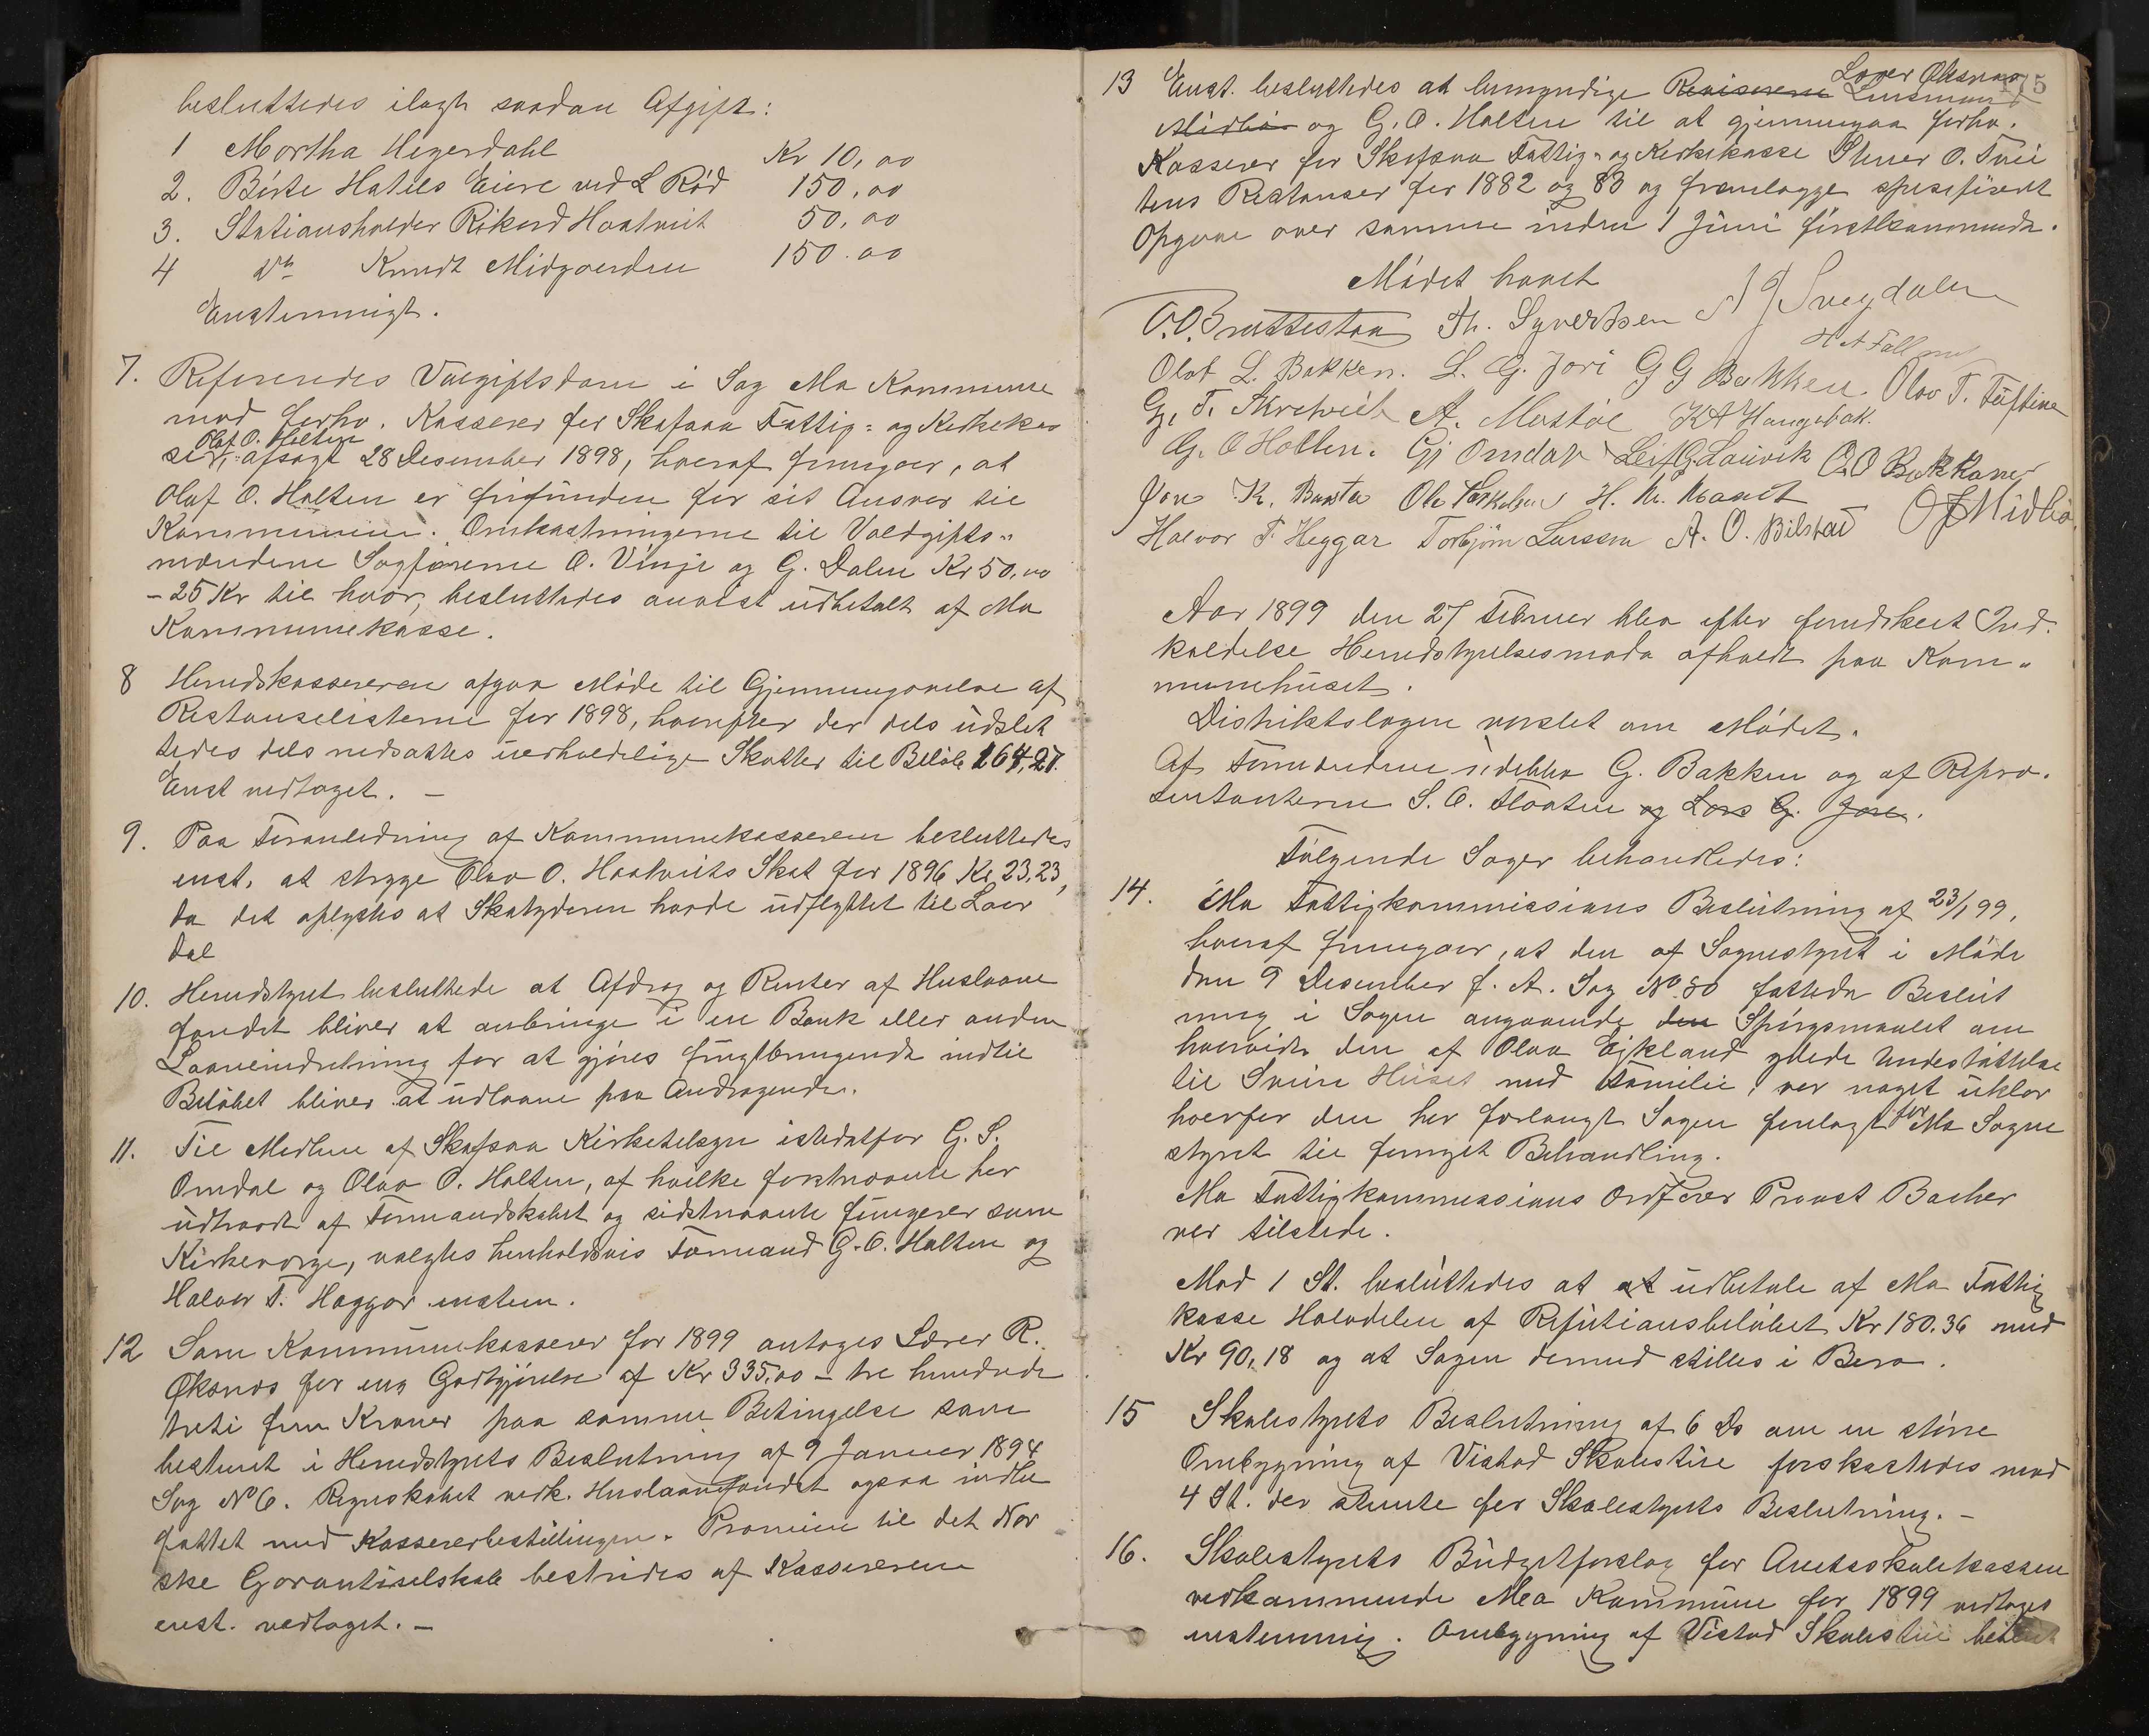 besluttedes ilagt saadan Afgift:
1 Mortha Hegerdahl Kr 10,00
2. Birte Hatlis Eiere ved L Rød 150,00
3. Stationsholder Rikard Haatveit 50,00
4 Do Knudt Midgaarden 150.00
Enstemmigt.
7. Refereredes Voldgiftsdom i Sag Mo Kommune
mod forhv. Kasserer for Skafsaa Fattig- og Kirkekas
Olaf O. Holten
se, afsagt 28 Desember 1898, hvoraf fremgaar, at
Olaf O. Holten er frifunden for sit Ansvar til
Kommunen. Omkostningerne til Voldgifts-
mændene Sagførerne O. Vinje og G. Dalen Kr 50,00
- 25 Kr til hver, besluttedes anvist udbetalt af Mo
Kommunekasse.
8 Heredskassereren afgav Møde til Gjennemgaaelse af
Restanselisterne for 1898, hvorefter der dels udslet
tedes dels nedsattes uerholdelige Skatter til Beløb 164,27.
Enst vedtaget. -
9. Paa Foranledning af Kommunekassereren besluttedes
enst. at stryge Olav O. Haatveits Skat for 1896 Kr 23,23,
da det oplystes at Skatyderen havde udflyttet til Laur
dal
10. Heredstyret besluttede at Afdrag og Renter af Huslaane
fondet bliver at anbringe i en Bank eller anden
Laaneindretning for at gjøres frugtbringende indtil
Beløbet bliver at udlaane paa Andragende.
11. Til Medlem af Skafsaa Kirketilsyn istedetfor G. S.
Omdal og Olav O. Holten, af hvilke førstnævnte har
udtraadt af Formandskabet og sidstnævnte fungerer som
Kirkeværge, valgtes henholdsvis Formand G. O. Holten og
Halvor T. Heggar enstem.
12 Som Kommunekasserer for 1899 antages Lærer R.
Øksnes for en Godtgjørelse af Kr 335,00 - tre hundrede
treti fem Kroner paa samme Betingelse som
bestemt i Heredstyrets Beslutning af 9 Januer 1894
Sag No 6. Regnskabet vedk. Huslaanefondet ogsaa indbe
fattet med Kassererbestillingen. Præmien til det Nor
ske Garantiselskab bestrides af Kassereren
enst. vedtaget. -
175
Lærer Øksnes
13 Enst. besluttedes at bemyndige Revisorerne Lensmand
Midbø og G. O. Holten til at gjennemgaa forhv.
Kasserer for Skafsaa Fattig- og Kirkekasse Stener O. Tvei
tens Restanser for 1882 og 83 og fremlægge spesifiseret
Opgave over samme inden 1 Juni førstkommende.
Mødet hævet
O. O. Brattestaa Th. Syvertsen A J Svegdalen
H A Fall
Olav L. Bakken. L. G. Jori G G Bakken. Olav T. Tuftine
G. T. Skrehvit A. Mostøl K A Haugebak.
G. O Holten. Gj Omdal Leif G. Lauvik O. O Bakkane
Jon K. Bersta Ole Torkelsen H. M. Moaset
Halvor T. Heggar Torbjørn Larssen A. O. Bilstad O J Midbø.
Aar 1899 den 27 Februer blev efter forudskeet Ind-
kaldelse Heredstyrelsesmøde afholdt paa Kom-
munehuset.
Distriktslægen varslet om Mødet.
Af Formændene udeblev G. Bakken og af Repræ-
sentanterne S. O. Floaten og Lars G. Jore.
Følgende Sager behandledes:
14. Mo Fattigkommissions Beslutning af 23/1 99,
hvoraf fremgaar, at den af Sognestyret i Møde
den 9 Desember f. A. Sag No 80 fattede Beslut
ning i Sagen angaaende den Spørgsmaalet om
hvorvidt den af Olav Eikland ydede Understøttelse
til Svein Huset med Familie, var noget uklar
hvorfor den har forlangt Sagen forelagt for Mo Sogne
styret til fornyet Behandling.
Mo Fattigkommissions Ordfører Provst Bacher
var tilstede.
Mod 1 St. besluttedes at at udbetale af Mo Fattig
kasse Halvdelen af Refutionsbeløbet Kr 180.36 med
Kr 90,18 og at Sagen dermed stilles i Bero.
15 Skolestyrets Beslutning af 6 Ds om en større
Ombygning af Vistad Skolestue forkastedes mod
4 St. der stemte for Skolestyrets Beslutning. -
16. Skolestyrets Budgetforslag for Amtsskolekassen
vedkommende Mo Kommune for 1899 vedtages
enstemmig. Ombygning af Vistad Skolestue